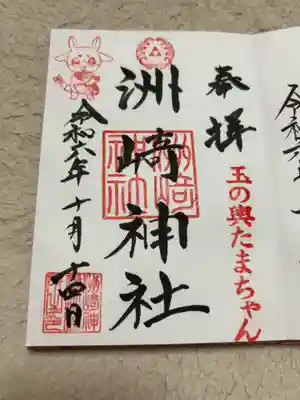 奉拝
玉の輿たまちゃん
洲崎神社
洲崎神社
令和六年十月十四日
令和六年